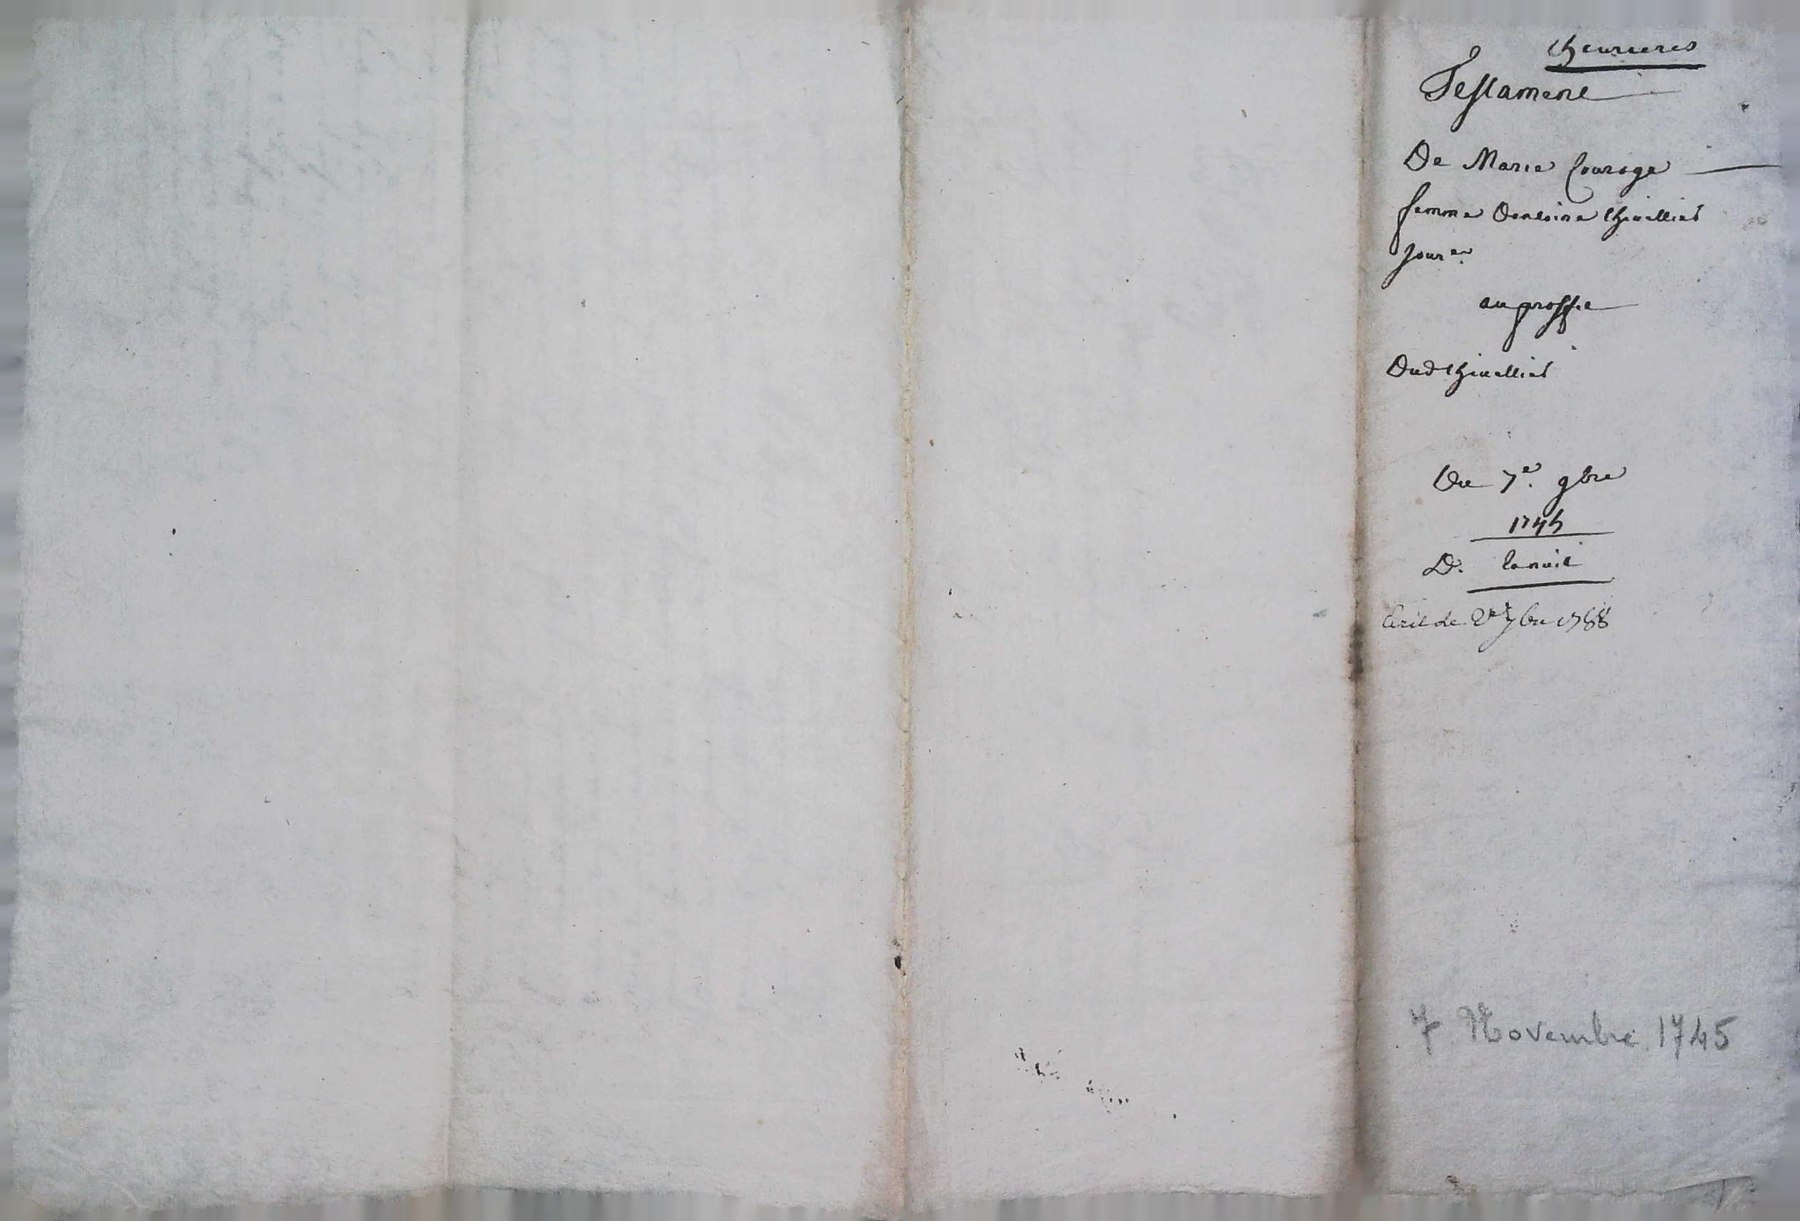 Cheurieres
Testament
De Marie Courage
femme Dantoine Chevallier
Jour.er
au proffit
Dud Chevallier
Du 7e. 9bre
1745
D. la nuit
Ecrit le 2e 7bre 1788
7 Novembre 1745